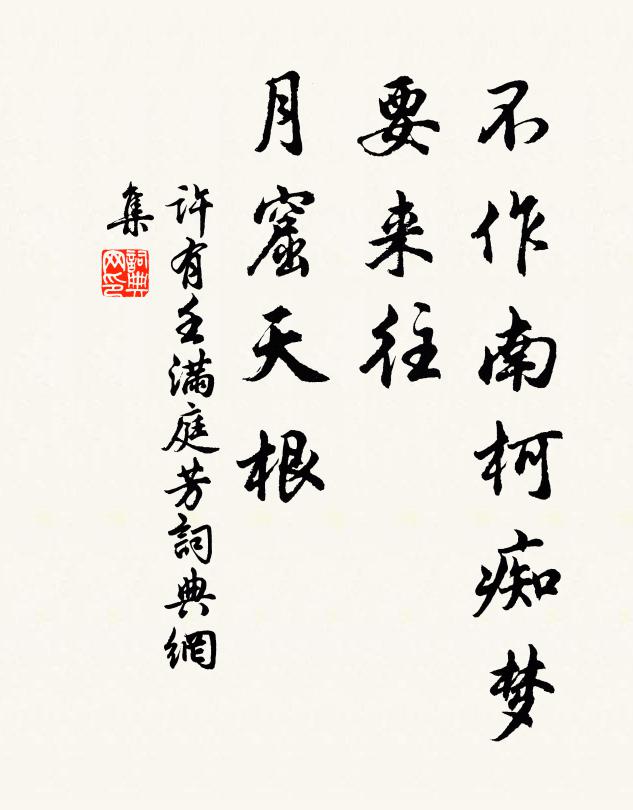 不作南柯痴梦
要来往
月窟天根
许有壬满庭芳詞典網
集
詞典
网印